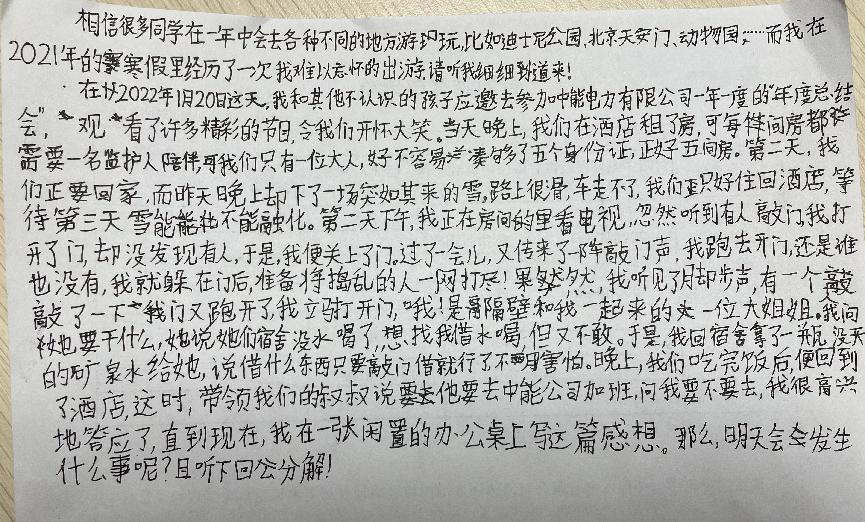 相信很多同学在一年中会去各种不同的地方游玩,比如迪士尼公园,北京天安门、动物园,……而我,在
2021年的寒假里经历了一次我难以忘怀的出游,请听我细细到道来!
在2022年1月20日这天,我和其他不认识的孩子应邀去参加中能电力有限公司一年一度的“年度总结
会”,观看了许多精彩的节目,令我们开怀大笑。当天晚上,我们在酒店租了房,可每间房都
需要一名监护人陪伴,可我们只有一位大人,好不容易凑够了五个身份证,正好五间房。第二天,我
们正要回家,而昨天晚上却下了一场突如其来的雪。路上很滑,车走不了,我们只好住回酒店,等
待第三天雪能不能融化。第二天下午,我正在房间的里看电视,忽然听到有人敲门,我打
开了门,却没发现有人,于是,我便关上了门,过了一会儿,又传来了一阵敲门声,我跑去开门,还是谁
也没有,我就躲在门后,准备将捣乱的人一网打尽!果然,我听见了脚步声,有一个敲
敲了一下我门又跑开了,我立马打开门,哦!是隔壁和我一起来的一位大姐姐。我问
她要干什么,她说她们宿舍没水喝了,想找我借水喝,但又不敢。于是,我回宿舍拿了一瓶没开
的矿泉水给她,说借什么东西只要敲门借就行了不用害怕。晚上,我们吃完饭后,便回到
了酒店,这时,带领我们的叔叔说他要去中能公司加班,问我要不要去,我很高兴
地答应了,直到现在,我在一张闲置的办公桌上写这篇感想。那么,明天会发生
什么事呢?且听下回分解!